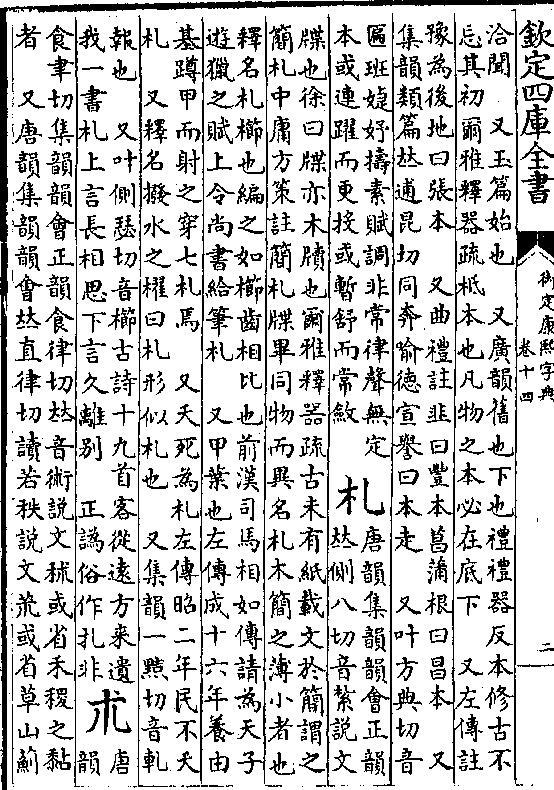 欽定四庫全書
御定康熙字典
卷十四
二
洽聞　又玉篇始也　又廣韻舊也下也禮禮器反本修古不
忘其初爾雅釋器疏柢本也凡物之本必在底下　又左傳註
豫為後地曰張本　又曲禮註韭曰豐本菖蒲根曰昌本　又
集韻類篇𠀤逋昆切同奔喻德宣譽曰本走　又叶方典切音
匾班婕妤擣素賦調非常律聲無定
本或連躍而更投或暫舒而常斂　札　唐韻集韻韻會正韻
𠀤側八切音紥說文
牒也徐曰牒亦木牘也爾雅釋器疏古未有紙載文於簡謂之
簡札中庸方策註簡札牒畢同物而異名札木簡之薄小者也
釋名札櫛也編之如櫛齒相比也前漢司馬相如傳請為天子
遊獵之賦上令尚書給筆札　又甲葉也左傳成十六年養由
基蹲甲而射之穿七札焉　又夭死為札左傳昭二年民不夭
札　又釋名撥水之櫂曰札形似札也　又集韻一㸃切音軋
報也　又叶側瑟切音櫛古詩十九首客從遠方来遺
我一書札上言長相思下言久離別　正譌俗作扎非　朮　唐
韻
食聿切集韻韻會正韻食律切𠀤音術說文秫或省禾稷之黏
者　又唐韻集韻韻會𠀤直律切讀若秩說文𦬸或省草山薊